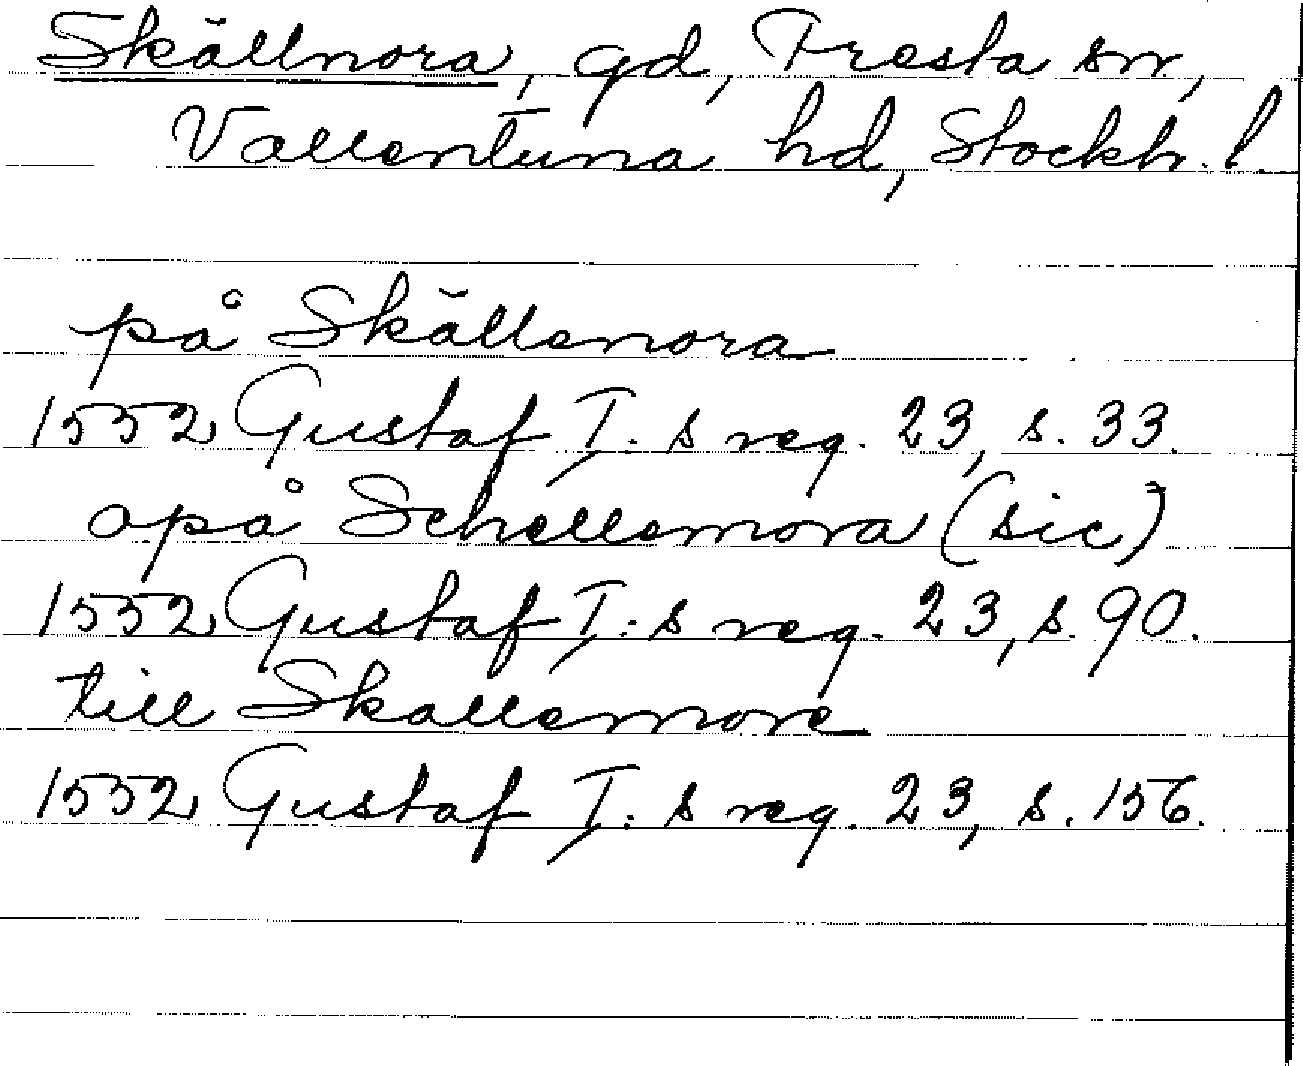 Skällnora, gd, Fresta sn,
Vallentuna hd, Stockh. l.
på Skällenora
1552 Gustaf I:s reg. 23, s. 33.
opå Schellemora (sic)
1552 Gustaf I:s reg. 23, s. 90.
till Skallemore
1552 Gustaf I:s reg. 23, s. 156.